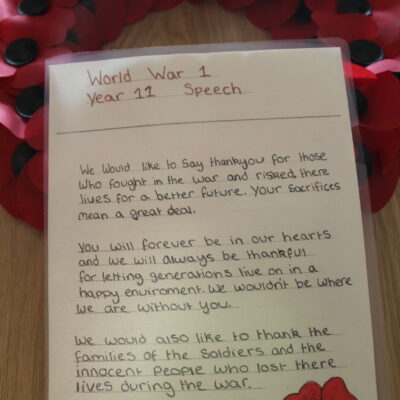 World War 1
Year 11 Speech
We would like to say thankyou for those
who fought in the war and risked there
lives for a better future. Your sacrifices
mean a great deal.
You will forever be in our hearts
and we will always be thankful
for letting generations live on in a
happy enviroment. We wouldn't be where
we are without you.
We would also like to thank the
families of the soldiers and the
innocent people who lost there
lives during the war.